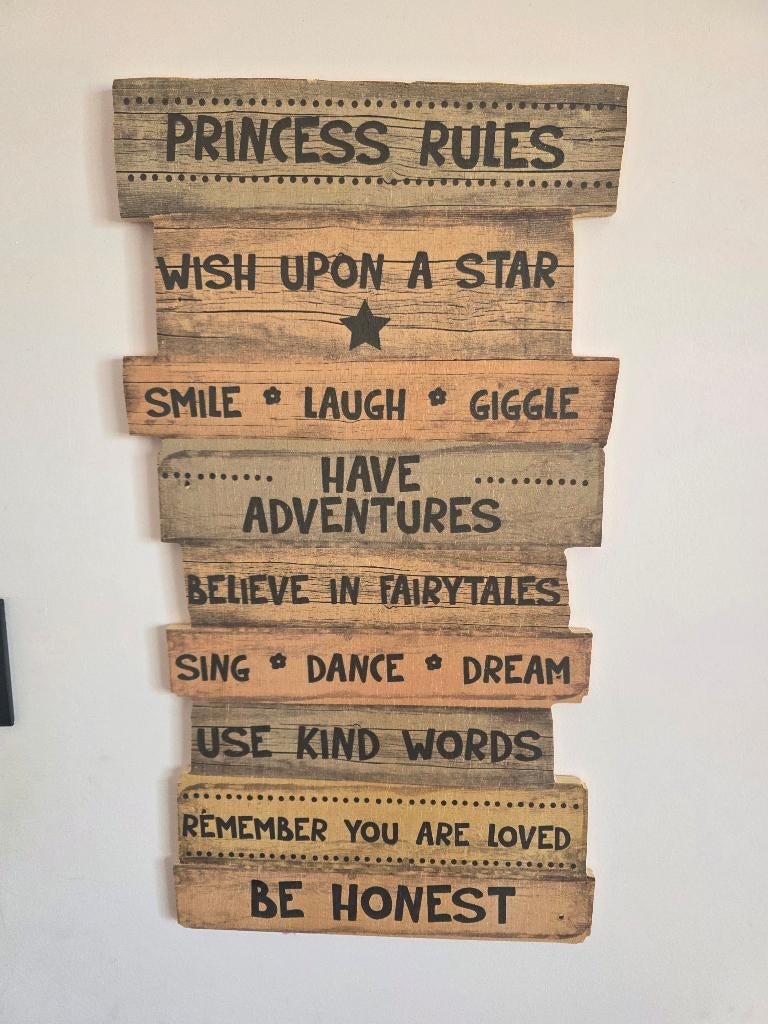 PRINCESS RULES
WISH UPON A STAR
SMILE LAUGH GIGGLE
HAVE
ADVENTURES
BELIEVE IN FAIRYTALES
SING DANCE DREAM
USE KIND WORDS
REMEMBER YOU ARE LOVED
BE HONEST